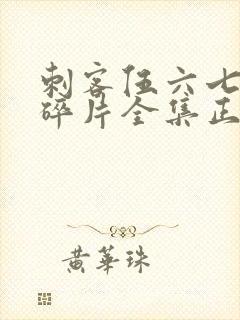 刺客伍六七
碎片全集正
黄华珠